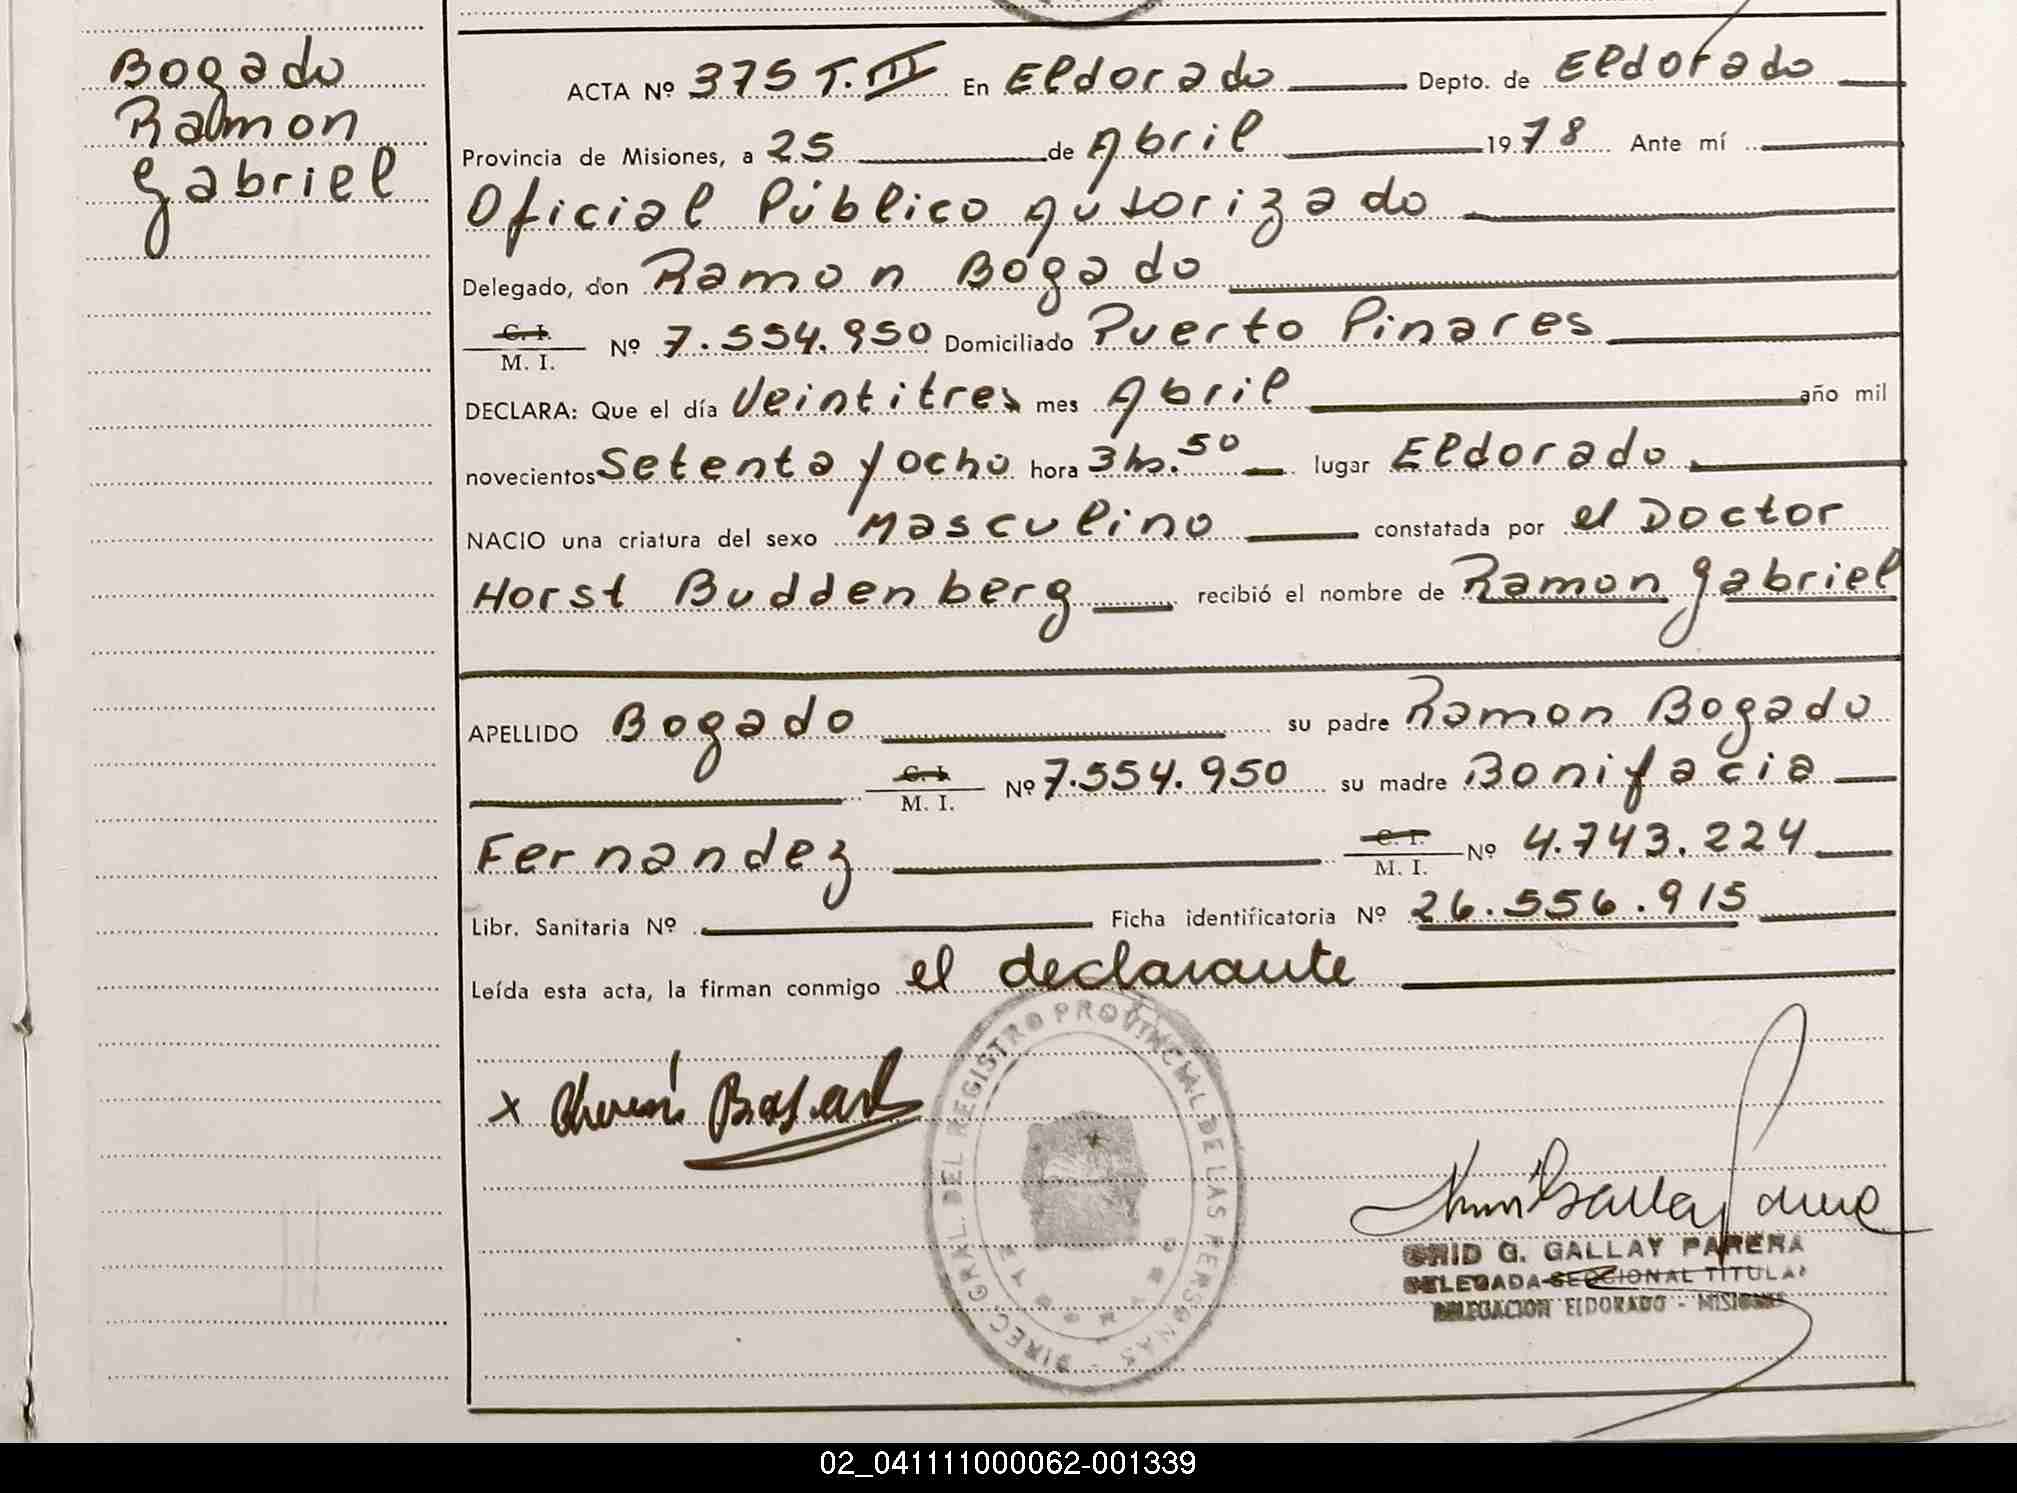 Bogado
Ramon
Gabriel
ACTA Nº 375 T. III En Eldorado Depto. de Eldorado
Provincia de Misiones, a 25 de Abril 1978 Ante mí
Oficial Público Autorizado
Delegado, don Ramon Bogado
C. I.
M. I. Nº 7.554.950 Domiciliado Puerto Pinares
DECLARA: Que el día Veintitres mes Abril año mil
novecientos Setenta y ocho hora 3 hs. 50 lugar Eldorado
NACIO una criatura del sexo Masculino constatada por el Doctor
Horst Buddenberg recibió el nombre de Ramon Gabriel
APELLIDO Bogado su padre Ramon Bogado
C. I.
M. I. Nº 7.554.950 su madre Bonifacia
Fernandez C. I.
M. I. Nº 4.743.224
Libr. Sanitaria Nº Ficha identificatoria Nº 26.556.915
Leída esta acta, la firman conmigo el declarante
DIREC. GRAL. DEL REGISTRO PROVINCIAL DE LAS PERSONAS
x
G. GALLAY PARERA
DELEGADA SECCIONAL TITULAR
DELEGACION ELDORADO - MISIONES
02_041111000062-001339